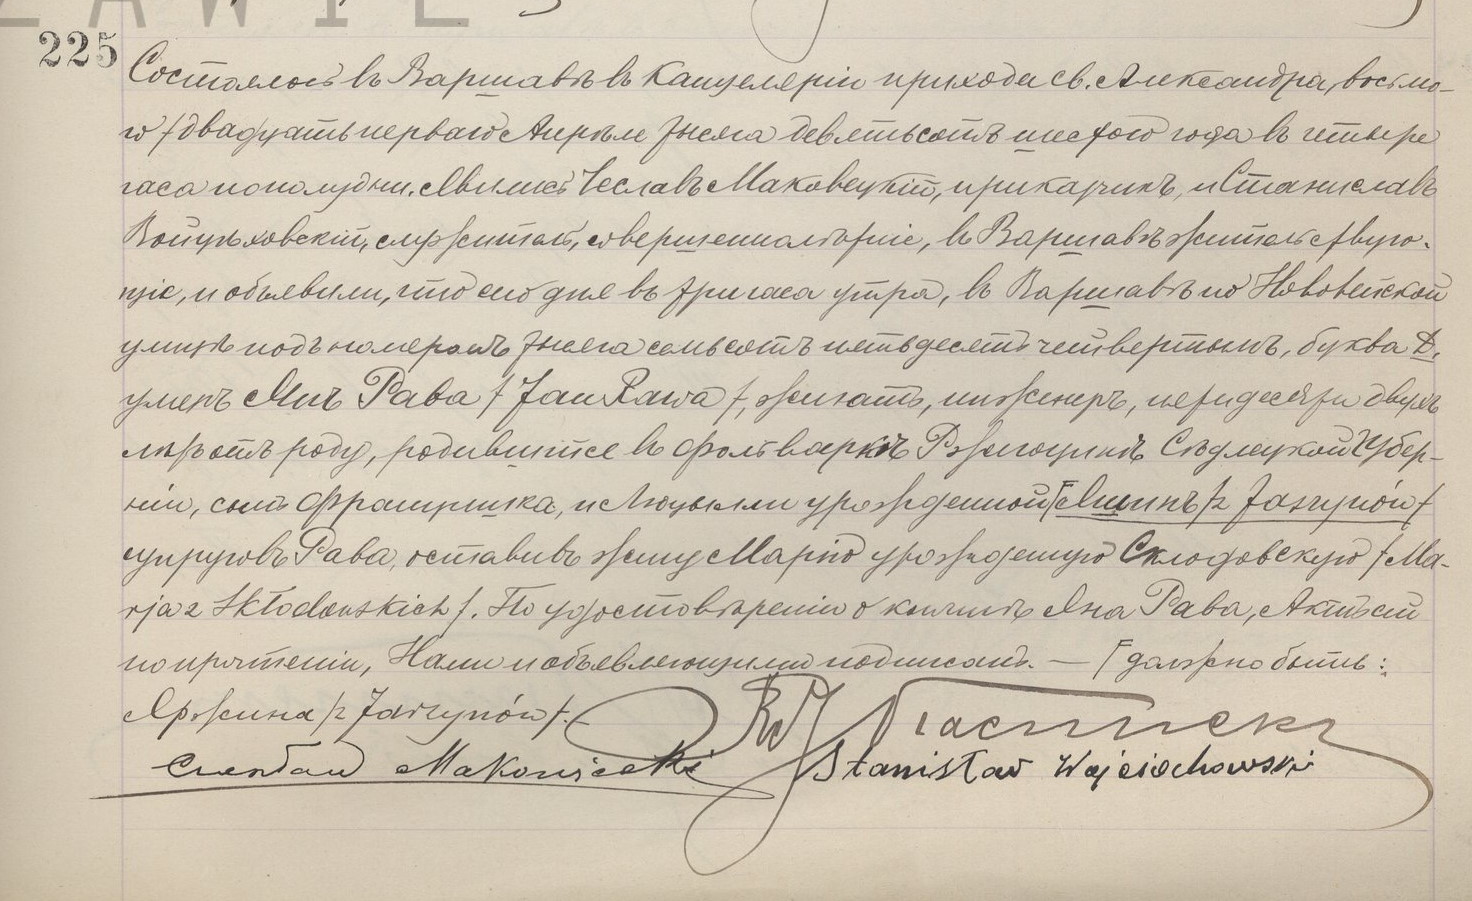 ZAWIE
225
Состоялось въ Варшавѣ въ Канцеляріи прихода св. Александра, восьма-
го / двадцать перваго Апрѣля тысяча девятьсотъ шестого года въ четыре
часа пополудни. Явились Чеславъ Маковецкій, прикащикъ, и Станиславъ
Войцѣховскій, служитель, совершеннолѣтніе, въ Варшавѣ жительствую-
щіе, и объявили, что сего дня въ три часа утра, въ Варшавѣ по Нововейской
улицѣ подъ номеромъ тысяча семьсотъ пятьдесятъ четвертымъ, буква D.
умеръ Янъ Рава / Jan Rawa /, женатъ, инженеръ, пятидесяти двухъ
лѣтъ отъ роду, родившійся въ фольваркѣ Сѣдлецкой Губер-
ніи, сынъ Францишка, и урожденной / z Jarzynów /
супруговъ Рава, оставивъ жену Марію урожденную Склодовскую / Ma-
rja z Skłodowskich /. По удостовѣреніи о кончинѣ Яна Рава, Актъ сей
по прочтеніи, Нами и объявляющими подписанъ. — Г должно быть:
Яржина / z Jarzynów /. —
Czesław Makowiecki Stanisław Wojciechowski